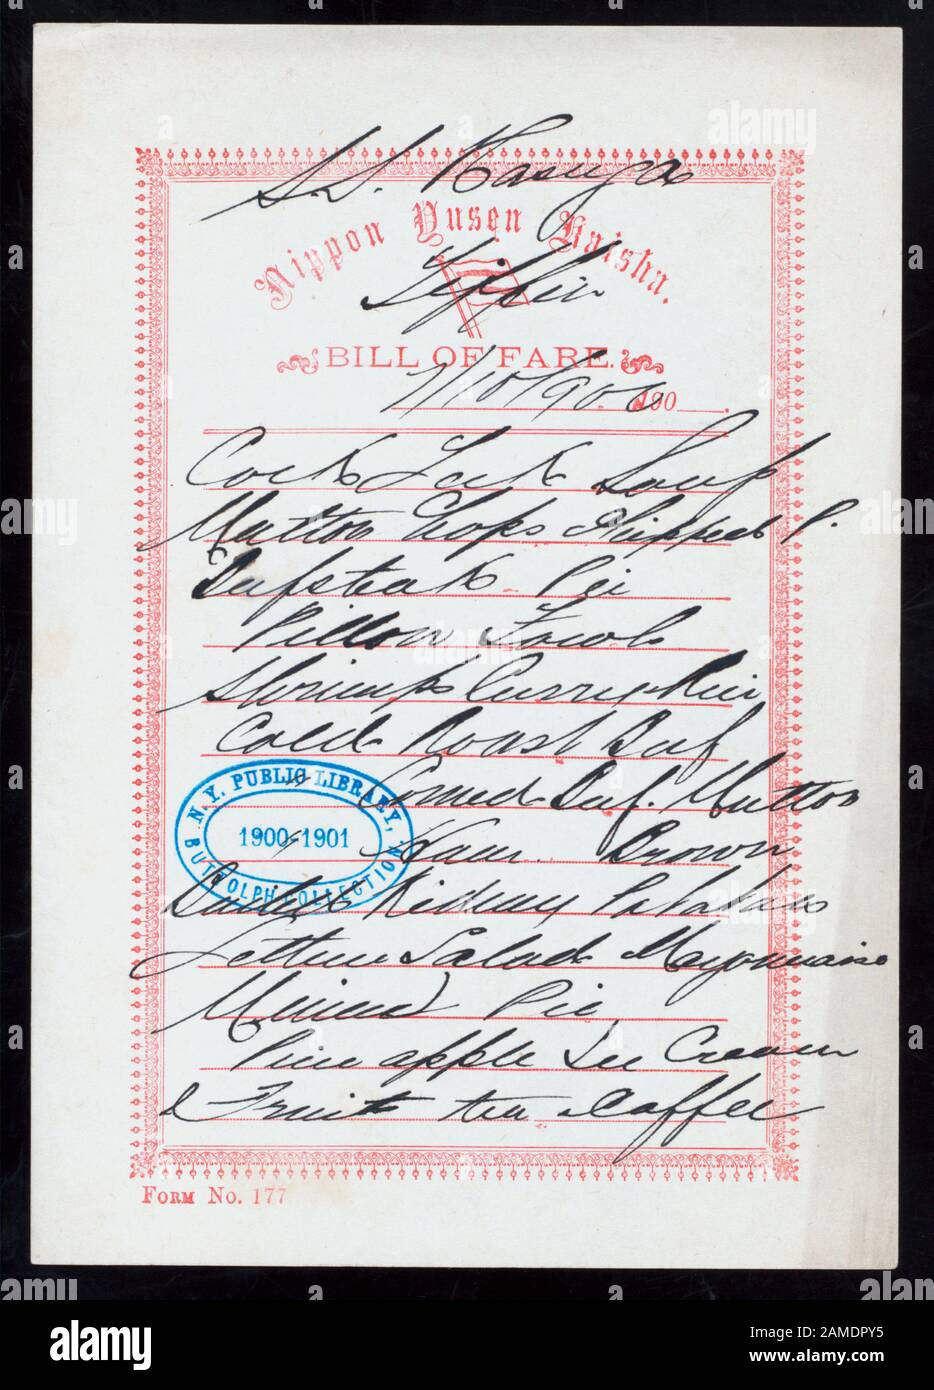 S.S. Kasuga
Nippon Yusen Kaisha.
Tiffin
BILL OF FARE.
7/10/1900 190
Cock Leek Soup
Mutton Chops Chipped P.
Beefsteak Pie
Pillow Fowl
Shrimps Curry & Rice
Cold Roast Beef
" Corned Beef. Mutton
" Ham. Brawn
N.Y. PUBLIC LIBRARY,
1900-1901
BUTTOLPH COLLECTION
Kidney Potatoes
Lettuce Salad Mayonnaise
Minced Pie
Pine apple Ice Cream
& Fruit tea Coffee
FORM No. 177
alamy
alamy
Image ID: 2AMDPY5
www.alamy.com